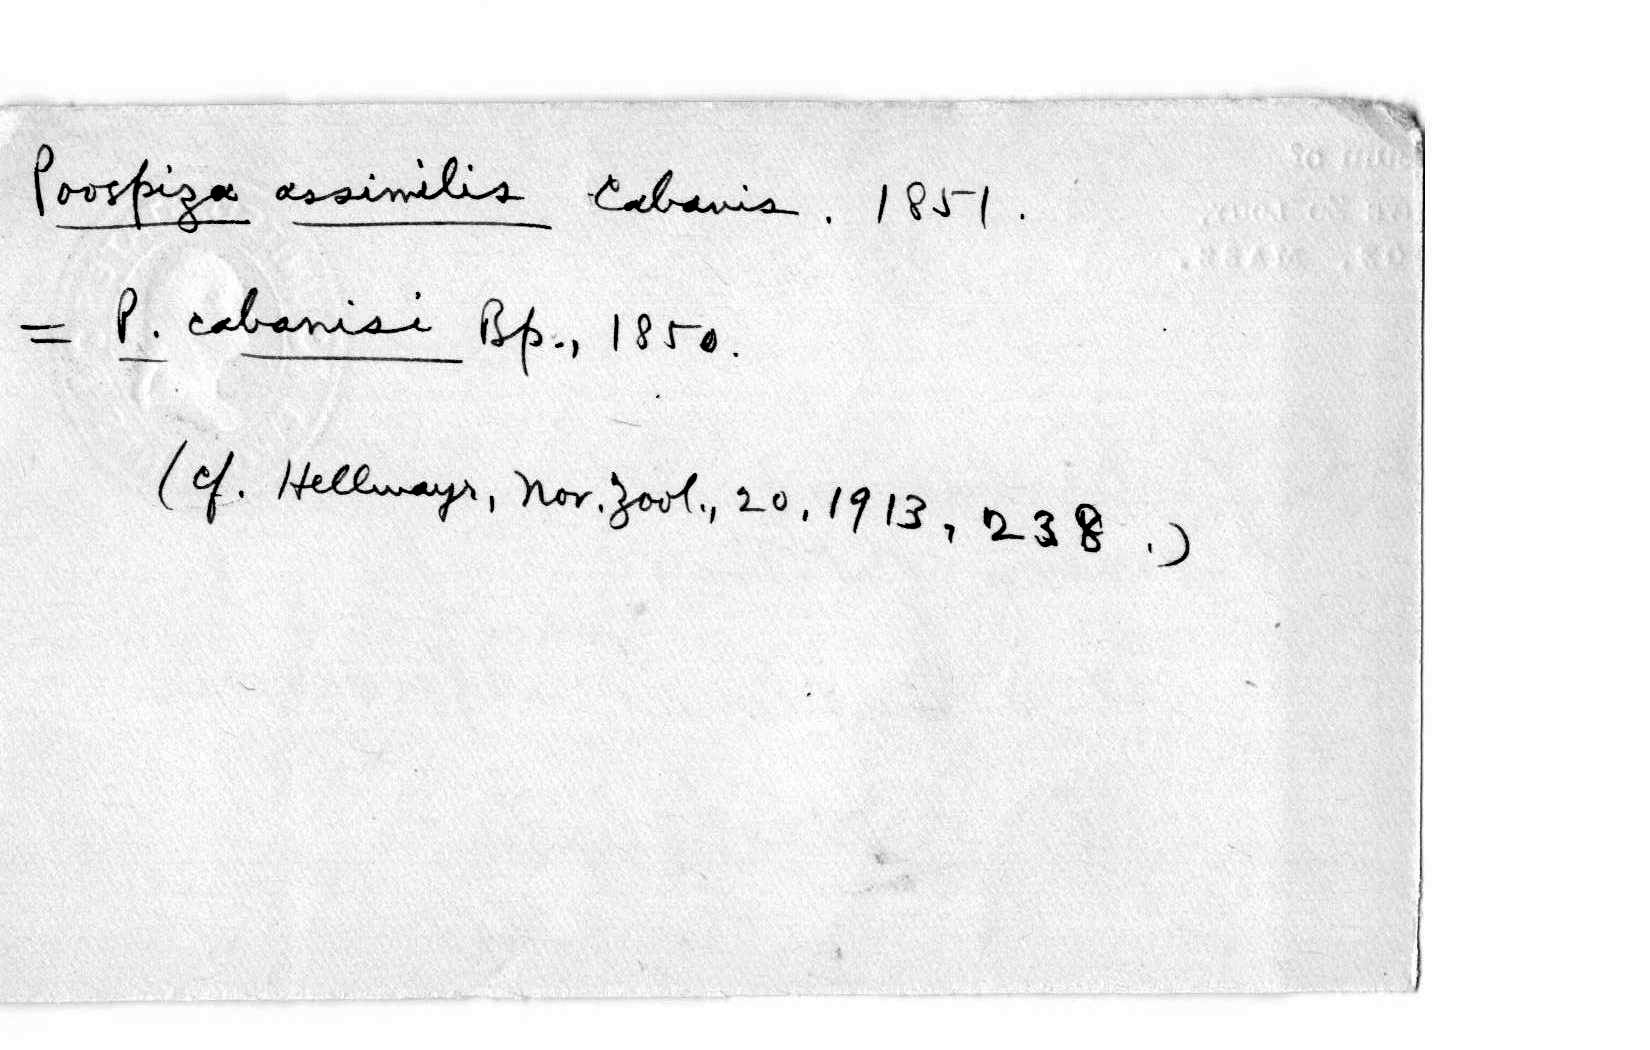 Poospiza assimilis Cabanis. 1851.
= P. cabanisi Bp., 1850.
(cf. Hellmayr, Nov. Zool., 20, 1913, 238.)